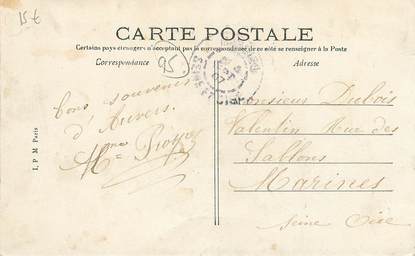 15 €
CARTE POSTALE
Certains pays étrangers n'acceptant pas la correspondance de ce côté se renseigner à la Poste
Correspondance
Adresse
95
07
Bons souvenirs
d'Auvers.
Mme
Monsieur Dubois
Valentin Rue des
Sablons
Marines
Seine Oise
L P M Paris